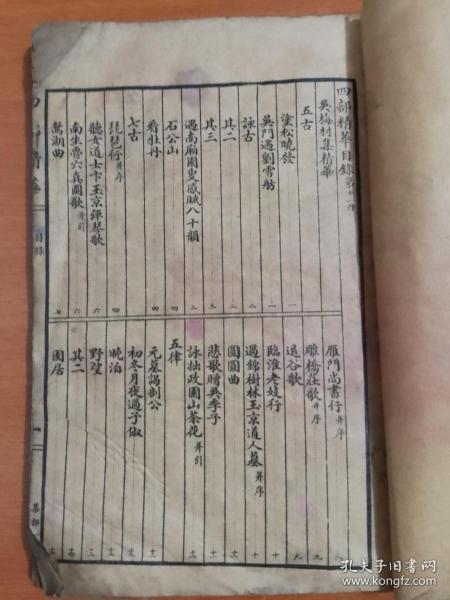 四部精華目錄
吳梅村集精華
五古
塗松曉發 一
吳門遇劉雪舫 一
詠古 二
其二 二
其三 三
遇南廂園叟感賦八十韻 三
石公山 四
看牡丹 四
七古
琵琶行并序 四
聽女道士卞玉京彈琴歌 六
南生魯六真圖歌并引 六
鴛湖曲 七
雁門尚書行并序 八
雕橋莊歌并序 九
退谷歌 九
臨淮老妓行 十
過錦樹林玉京道人墓并序 十
圓圓曲
悲歌贈吳季子
詠拙政園山茶花并引
五律
元墓謁剖公
初冬月夜過子俶
晚泊
野望
其二
園居
目錄
集部
孔夫子旧书网
www.kongfz.com